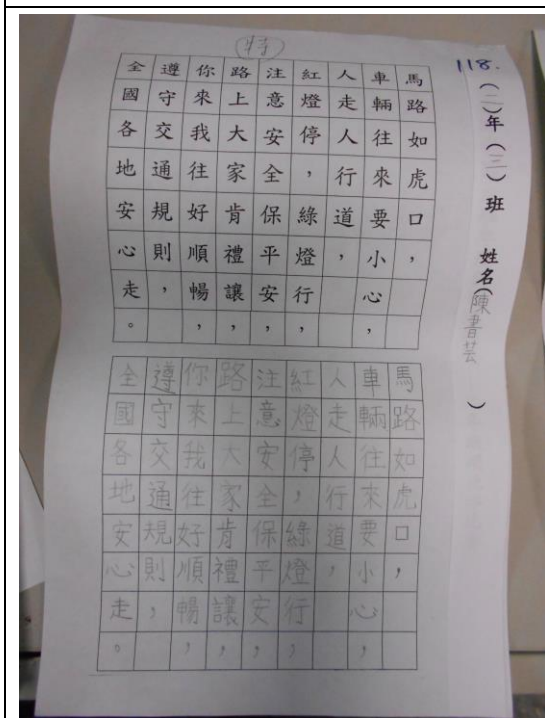 118.
(二)年(三)班 姓名(陳書芸)
(特)
馬路如虎口，
車輛往來要小心，
人走人行道，
紅燈停，綠燈行，
注意安全保平安，
路上大家肯禮讓，
你來我往好順暢，
遵守交通規則，
全國各地安心走。
馬路如虎口，
車輛往來要小心，
人走人行道，
紅燈停，綠燈行，
注意安全保平安，
路上大家肯禮讓，
你來我往好順暢，
遵守交通規則，
全國各地安心走。